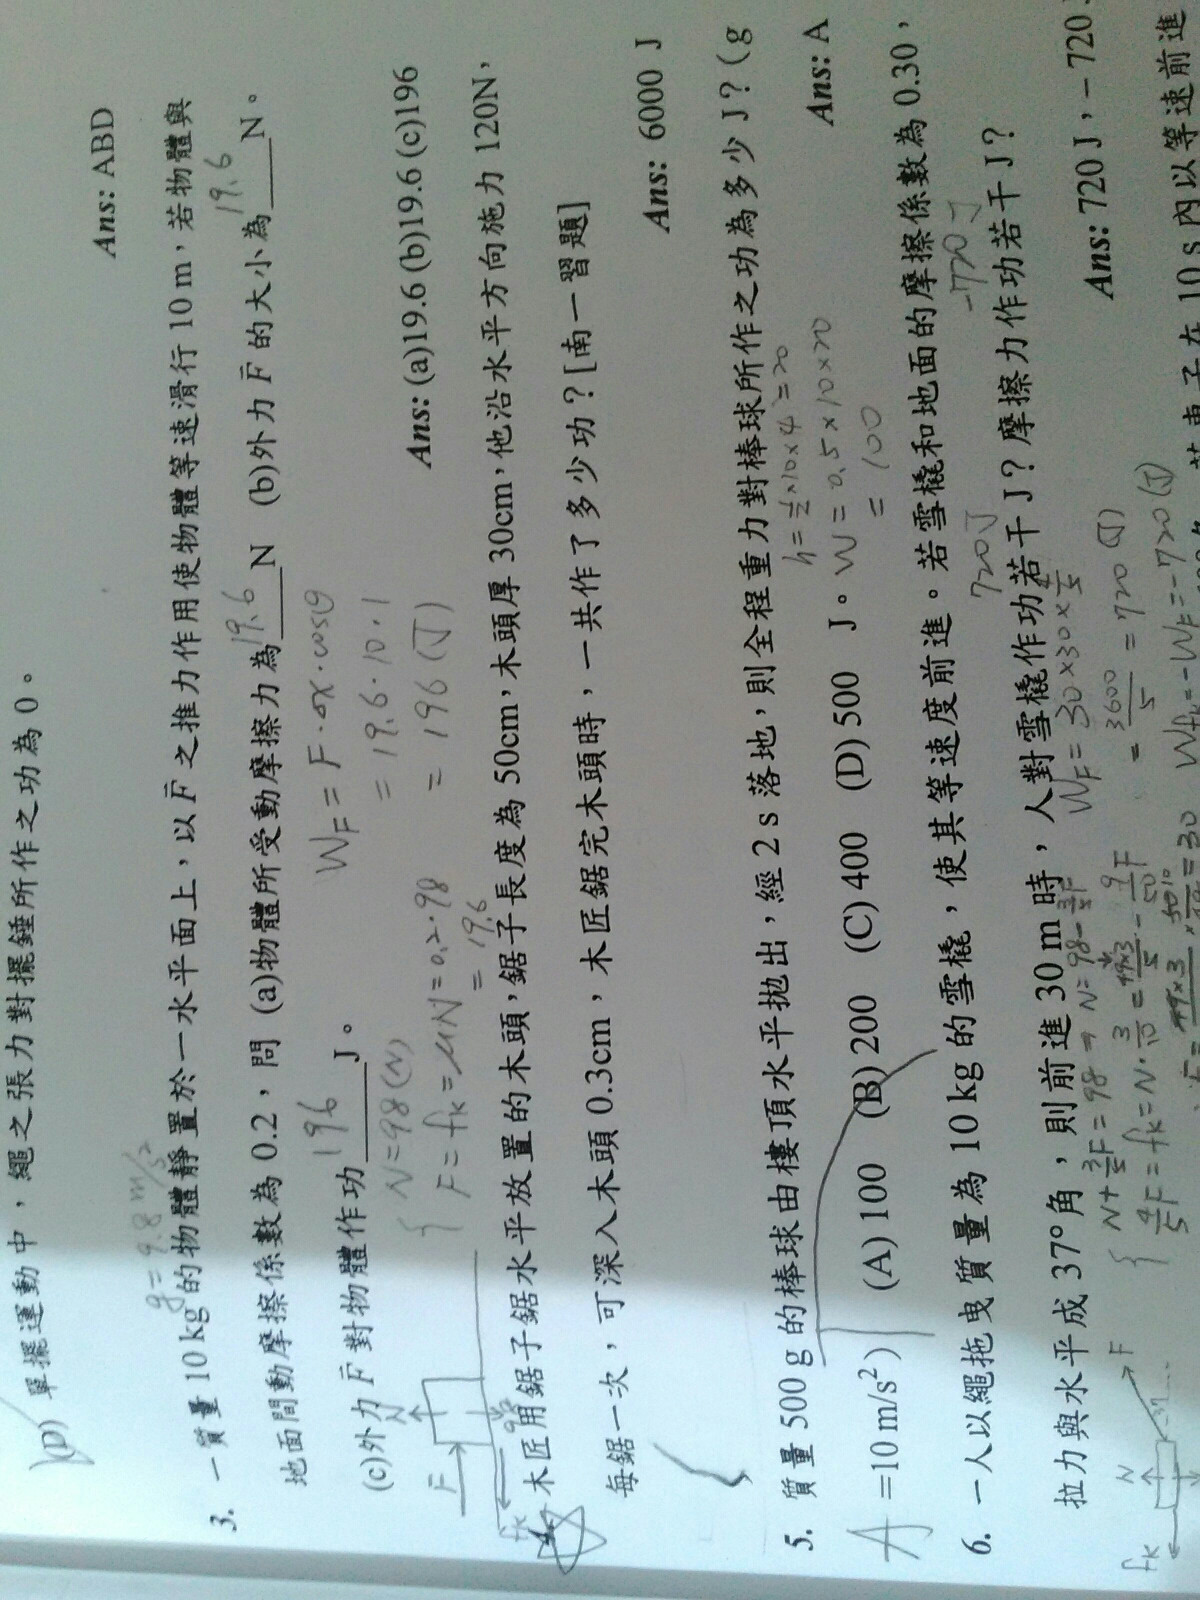 (D) 單擺運動中，繩之張力對擺錘所作之功為0。
Ans: ABD
g=9.8 m/s²
3. 一質量10 kg的物體靜置於一水平面上，以F之推力作用使物體等速滑行10 m，若物體與
地面間動摩擦係數為0.2，問 (a)物體所受動摩擦力為 19.6 N (b)外力F的大小為 19.6 N。
(c)外力F對物體作功 196 J。
W_F = F·Δx·cosθ
= 19.6·10·1
= 196 (J)
N=98(N)
F=fk=μN=0.2·98
= 19.6
N
F
fk
Ans: (a)19.6 (b)19.6 (c)196
4. 木匠用鋸子鋸水平放置的木頭，鋸子長度為50cm，木頭厚30cm，他沿水平方向施力120N，
每鋸一次，可深入木頭0.3cm，木匠鋸完木頭時，一共作了多少功？[南一習題]
Ans: 6000 J
5. 質量500 g的棒球由樓頂水平拋出，經2 s落地，則全程重力對棒球所作之功為多少J？(g
=10 m/s²) (A) 100 (B) 200 (C) 400 (D) 500 J。
A
h=½×10×4=20
W=0.5×10×20
= 100
Ans: A
6. 一人以繩拖曳質量為10 kg的雪橇，使其等速度前進。若雪橇和地面的摩擦係數為0.30，
拉力與水平成37°角，則前進30 m時，人對雪橇作功若干J？摩擦力作功若干J？
720J
-720J
N+3/5F=98 → N=98-3/5F
4/5F=fk=N·3/10
W_F=30×30×4/5
=3600/5=720 (J)
W_fk=-W_F=-720 (J)
N
F
fk
Ans: 720 J，－720